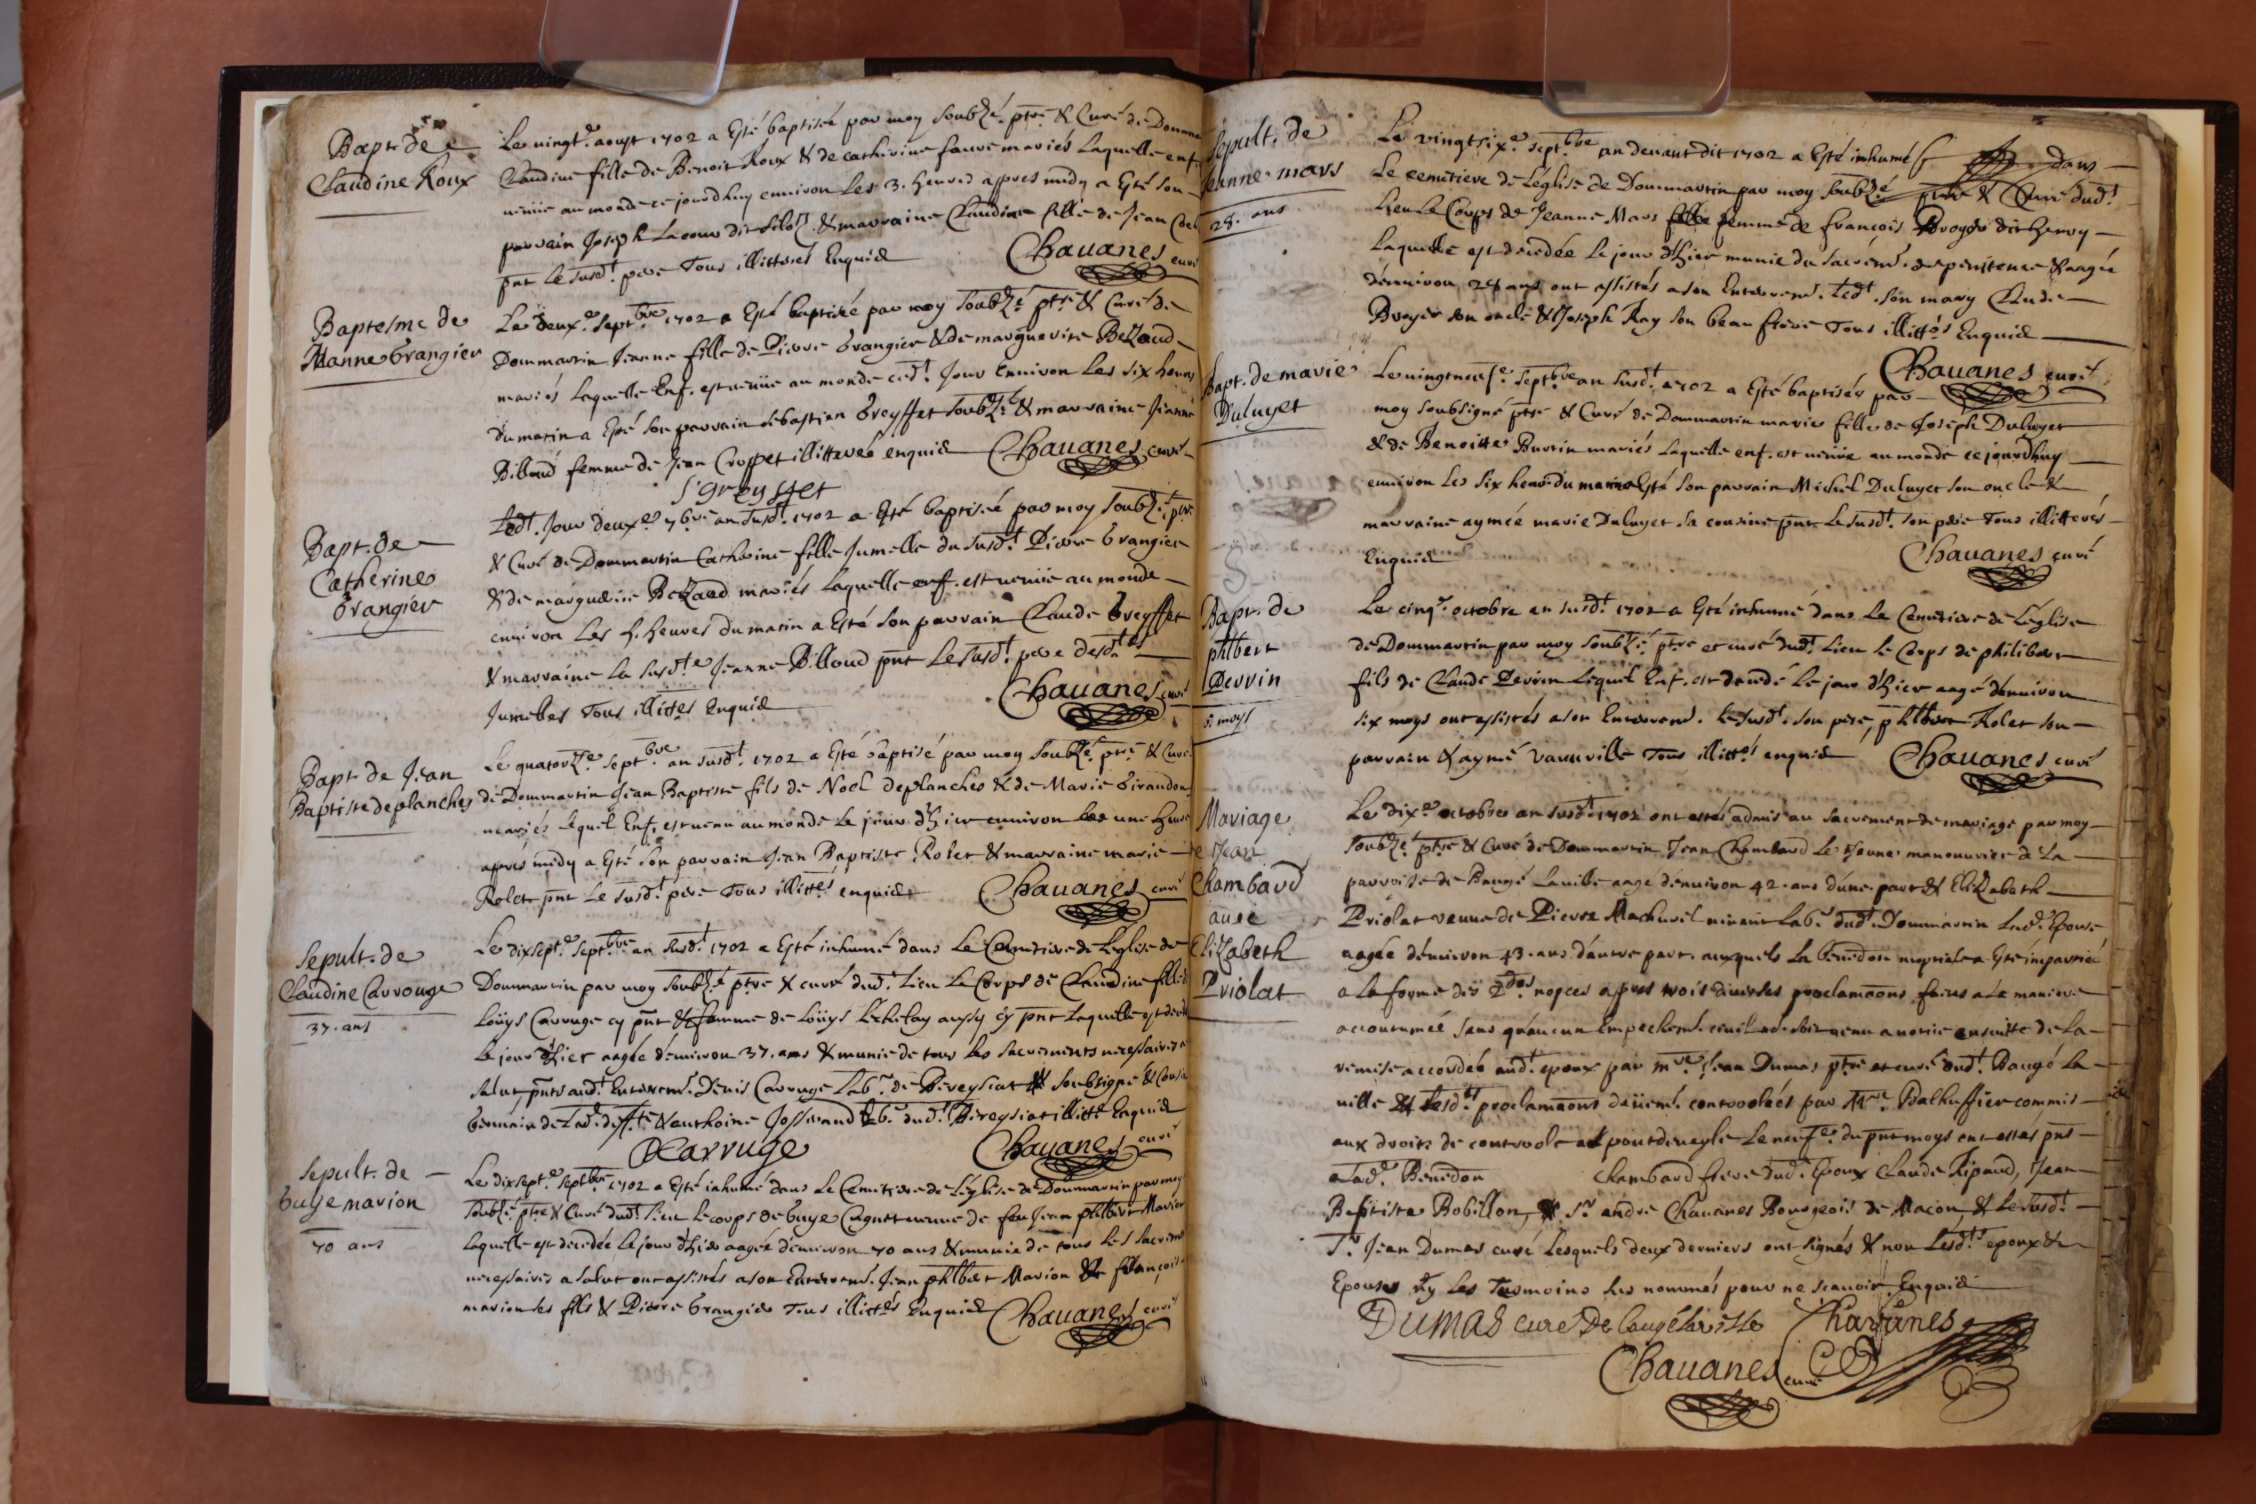 Bapt. de
Claudine Roux
Le vingt.e aoust 1702 a Esté baptisée par moy soubzé. ptre & Curé de Domma
Claudine fille de Benoit Roux & de catherine faure mariés Laquelle enf.
venüe au monde ce jourdhuy environ Les 3. heures apres midy a Esté son
parrain Joseph Lacour dit & marraine Claudine fille de Jean
pnt le susd.t pere Tous illitterés Enquis
Chauanes curé
Baptesme de
Jeanne Grangier
Le deux.e sept.bre 1702 a Esté baptisée par moy soubzé ptre & Curé de
Dommartin Jeanne fille de Pierre Grangier & de marguerite Bezaud
mariés Laquelle Enf. est venüe au monde ced.t Jour Environ Les six heures
du matin a Esté son parrain sebastien Greyffet soubzé & marraine Jeanne
Billoud femme de Jean Croppet illitterée enquis Chauanes curé
S greysfet
Bapt. de
Catherine
Grangier
Led.t Jour deux.e 7bre an susd.t 1702 a Esté baptisée par moy soubzé. ptre
& Curé de Dommartin Catherine fille Jumelle du susd.t Pierre Grangier
& de marguerite Bezaud mariés Laquelle enf. est venüe au monde
environ Les h. heures du matin a Esté son parrain Claude Greyffet
& marraine La susd.te Jeanne Billoud pnt Le susd.t pere desd.tes
Jumelles Tous illittés Enquis
Chauanes curé
Bapt. de Jean
Baptiste deplanches
Le quatorze sept.bre an susd.t 1702 a Esté baptisé par moy soubzé ptre & Curé
de Dommartin Jean Baptiste fils de Noel deplanches & de Marie Giraudon
mariés Lequel Enf. est venu au monde Le jour d'hier environ une heure
apres midy a Esté son parrain Jean Baptiste Rolet & marraine marie
Rolet pnt Le susd.t pere Tous illittés enquis Chauanes curé
Sepult. de
Claudine Carrouge
37. ans
Le dixsept.e sept.bre an susd.t 1702 a Esté inhumé dans Le Cemetiere de L'eglise de
Dommartin par moy soubzé ptre & curé dud.t Lieu Le Corps de Claudine fille
Loüys Carruge cy pnt & femme de Loüys aussy cy pnt Laquelle est
Le jour d'hier aagée d'environ 37. ans & munie de tous Les sacrements necessaires a
salut pnts aud.t Enterrem.t Denis Carruge Lab.r de Bereysiat soubsigné & Cousin
Germain de Lad.e deff.te & anthoine Josserand Lab.r dud.t Bereysiat illitté Enquis
DCarruge Chauanes curé
Sepult. de
Guye marion
70 ans
Le dixsept.e sept.bre 1702 a Esté inhumé dans Le Cemetiere de L'eglise de Dommartin par moy
soubzé ptre & Curé dud.t Lieu Le corps de Guye veuue de feu Jean philbert Marion
Laquelle est decedée Le jour d'hier aagée d'environ 70 ans & munie de tous Les sacrem.
necessaires a salut ont assistés a son Enterrem.t Jean philbert Marion & françois
marion ses fils & Pierre Grangier Tous illittés Enquis Chauanes curé
Sepult. de
Jeanne mars
28. ans
Le vingtsix.e sept.bre an deuant dit 1702 a Esté inhumé dans
Le cemetiere de L'eglise de Dommartin par moy soubzé ptre & Curé dud.t
Lieu Le Corps de Jeanne Mars femme de françois Broyer dit henry
Laquelle est decedée Le jour d'hier munie du sacrem.t de penitence & aagée
d'environ 28 ans ont assistés a son Enterrem.t Led.t son mary Claude
Broyer son oncle & Joseph Ray son beau frere Tous illittés Enquis
Chauanes curé
Bapt. de marie
Duluyet
Le vingtneuf.e sept.bre an susd.t 1702 a Esté baptisée par
moy soubsigné ptre & Curé de Dommartin marie fille de Joseph Duluyet
& de Benoitte Burtin mariés Laquelle enf. est venüe au monde ce jourdhuy
environ Les six heures du matin a Esté son parrain Michel Duluyet son oncle &
marraine aymée marie Duluyet sa cousine pnt Le susd.t son pere Tous illitterés
Enquis
Chauanes curé
Bapt. de
philbert
Perrin
6. moys
Le cinq.e octobre an susd.t 1702 a Esté inhumé dans Le Cemetiere de L'eglise
de Dommartin par moy soubzé ptre et curé dud.t Lieu Le Corps de philibert
fils de Claude Perrin Lequel Enf. est decedé Le jour d'hier aagé d'environ
six moys ont assistés a son Enterrem.t Le susd.t son pere, philbert Rolet son
parrain & aymé Vauuille Tous illittés enquis Chauanes curé
Mariage
de Jean
Chambard
auec
Elizabeth
Priolat
Le dix.e octobre an susd.t 1702 ont estés admis au sacrement de mariage par moy
soubzé ptre & Curé de Dommartin Jean Chambard Le Jeune manouurier de La
parroisse de Baugé La uille aage d'enuiron 42. ans d'une part & Elizabeth
Priolat veuue de Pierre viuant Lab.r dud.t Dommartin Lad.e Epouse
aagée d'enuiron 43. ans d'autre part. auxquels La benedon nuptiale a Esté impartié
a La forme des 2des nopces apres trois diuerses proclamaons faites a La maniere
accoutumée sans qu'aucun Empechem.t ciuil soit venu a notice ensuitte de La
remise accordée aud.t epoux par m.re Jean Dumas ptre et curé dud.t Baugé La
uille & Lesd.tes proclamaons düem.t controolées par M.re commis
aux droits de controole au pontdeueyle Le neuf.e du pnt moys ont estés pnts
a Lad.e Benedon Chambard frere dud.t Epoux Claude Ripaud, Jean
Baptiste Robillon, & S.r andré Chauanes Bourgeois de Macon & Le susd.t
S.r Jean Dumas curé Lesquels deux derniers ont signés & non Lesd.ts epoux &
Epouse ny Les Tesmoins sus nommés pour ne scauoir Enquis
Dumas curé De baugélaville Chavanes
Chauanes curé